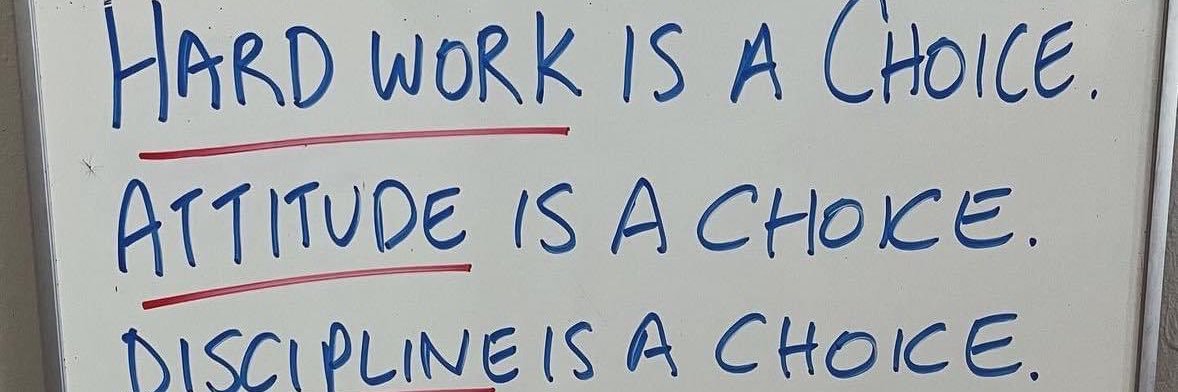 HARD WORK IS A CHOICE.
ATTITUDE IS A CHOICE.
DISCIPLINE IS A CHOICE.